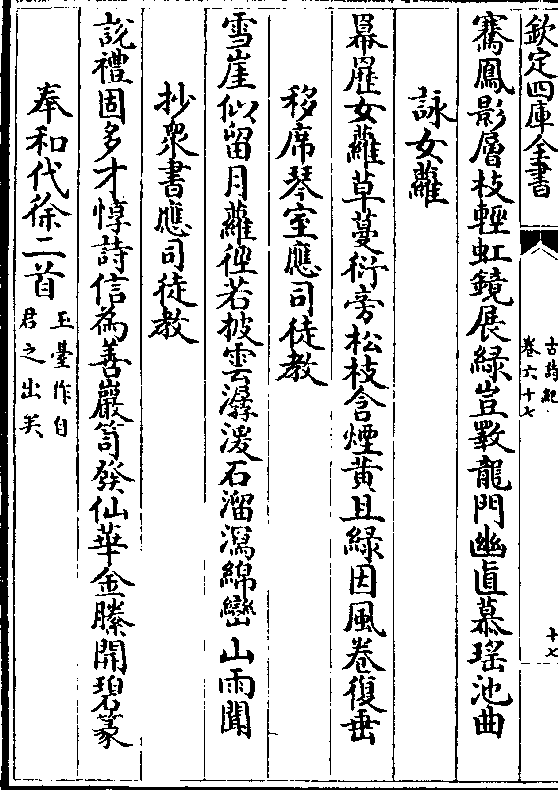 欽定四庫全書
古詩紀
卷六十七
十七
騫鳳影層枝輕虹鏡展綠豈斁龍門幽直慕瑤池曲
詠女蘿
冪䍥女蘿草蔓衍旁松枝含煙黃且綠因風卷復垂
移席琴室應司徒教
雪崖似留月蘿徑若披雲潺湲石溜瀉綿巒山雨聞
抄衆書應司徒教
說禮固多才惇詩信為善巖笥發仙華金縢開碧篆
奉和代徐二首
玉臺作自
君之出矣